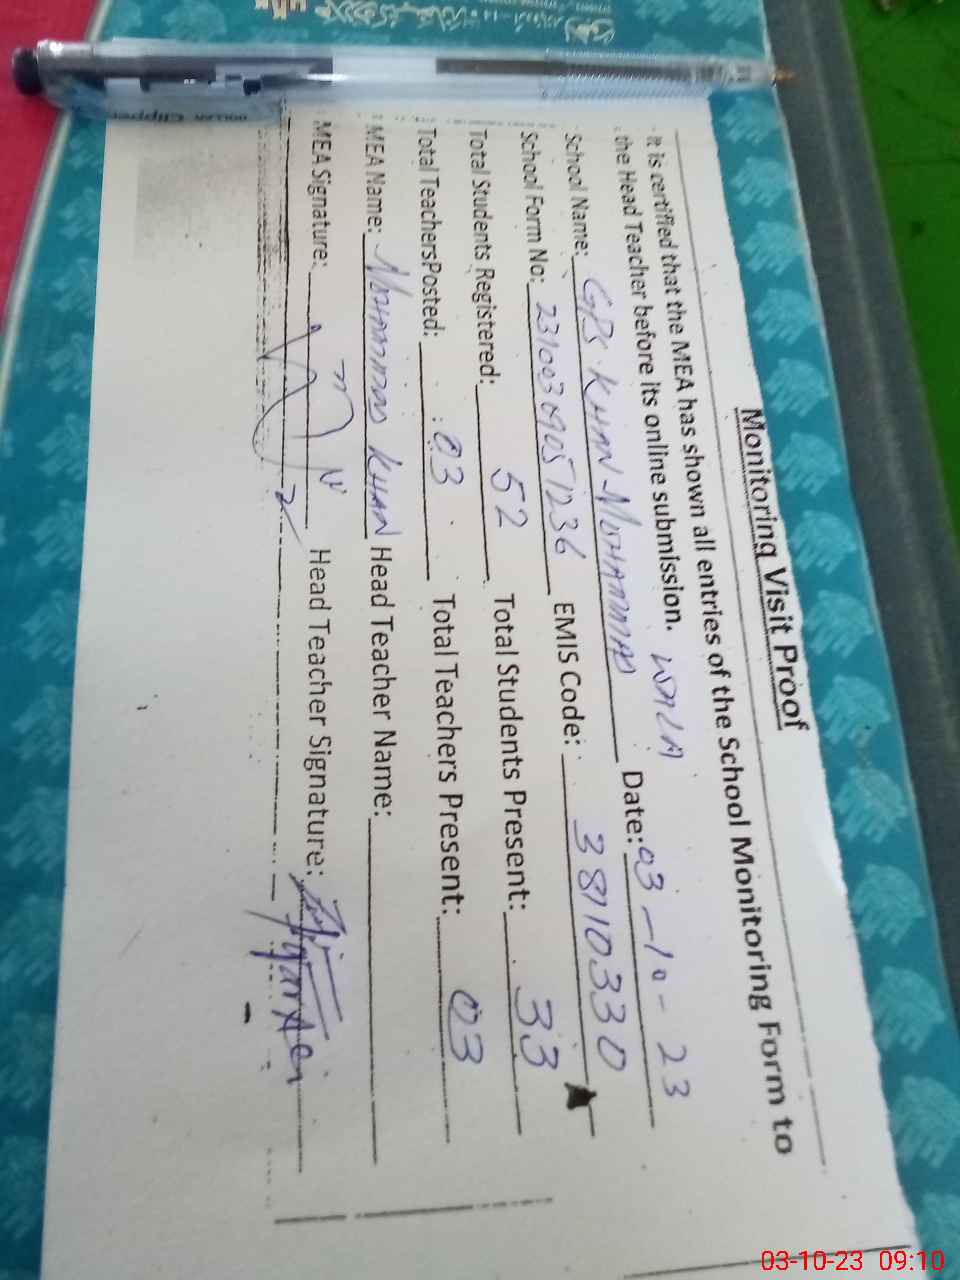 Monitoring Visit Proof
It is certified that the MEA has shown all entries of the School Monitoring Form to
the Head Teacher before its online submission.
School Name: GPS KHAN MOHAMMAD WALA Date: 03-10-23
School Form No: 23100309051236 EMIS Code: 38110330
Total Students Registered: 52 Total Students Present: 33
Total TeachersPosted: 03 Total Teachers Present: 03
MEA Name: MOHAMMAD KHAN Head Teacher Name:
MEA Signature: Head Teacher Signature:
DOLLAR Clipper
03-10-23 09:10